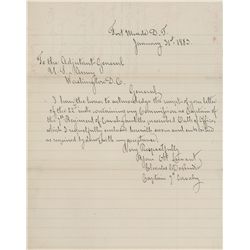 Fort Meade D.T.
January 31st 1883.
To the Adjutant General
U.S. Army
Washington D.C.
General,
I have the honor to acknowledge the receipt of your letter
of the 22d inst. enclosing my Commission as Captain of
the 7th Regiment of Cavalry and the presented Oath of Office,
which I respectfully enclose herewith sworn and subscribed
as required by law with my acceptance.
Very Respectfully
Your Obt Servant,
Charles C. DeRudio
Captain 7th Cavalry